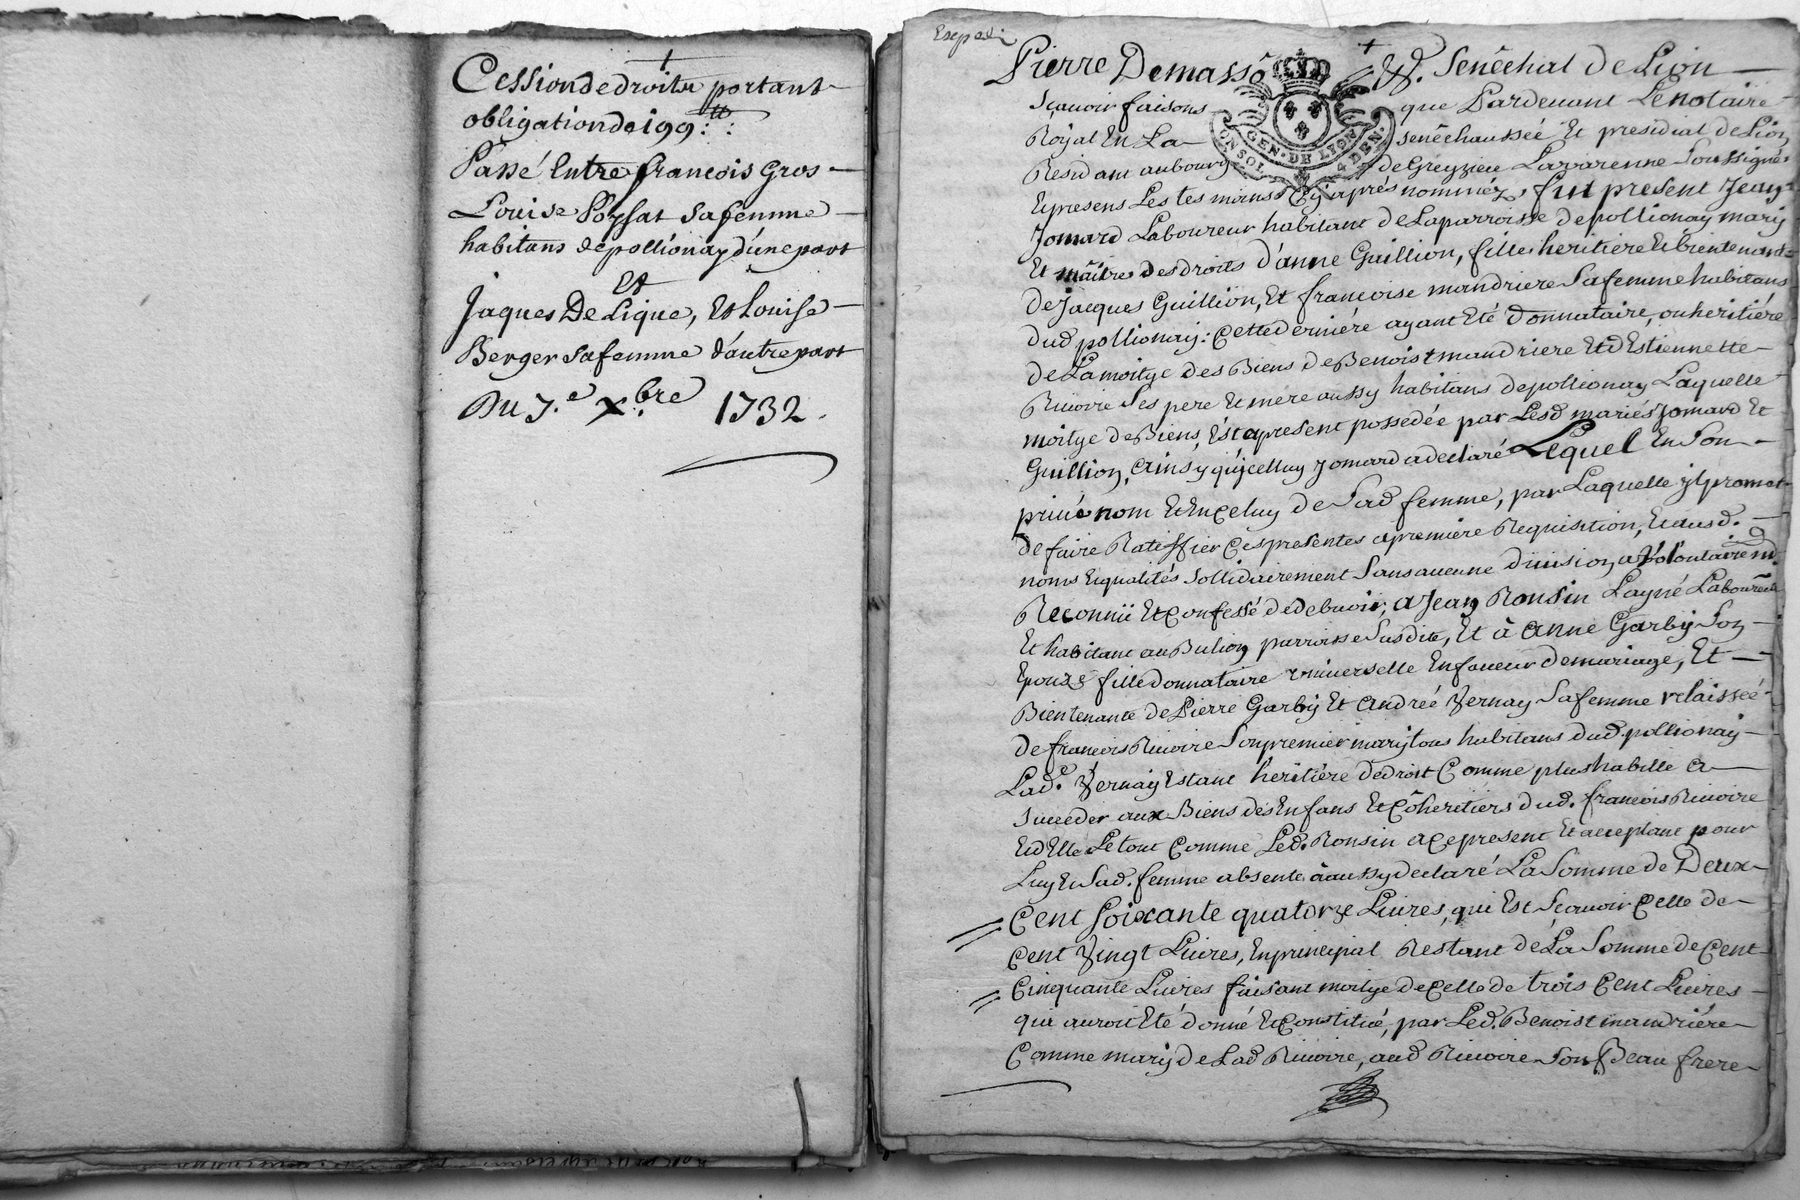 Cession de droits portant
obligation de 199 ₶ :
Passé Entre francois Gros
Louise Poysat Sa femme
habitans de pollionay d'une part
Et
Jaques De Lique, Et Louise
Berger Sa femme d'autre part
Du 7.e Xbre 1732.
Expedié
Pierre Demassô Sgr. Senêchal de Lion
Sçavoir faisons que Pardevant Le notaire
Royal En La senêchaussée Et presidial de Lion
Resid ant au bourg de Greyzieu Lavarenne Soussigné
GEN. DE LION
Epresens Les tesmoins Cy après nomméz, fut present Jean
Jomard Laboureur habitant de Laparroisse de pollionay mary
Et maître des droits d'anne Guillion, fille heritiere Et bientenante
de Jacques Guillion, Et francoise mandriere Sa femme habitans
dud pollionay: Cette derniére ayant Eté donnataire, ou heritiére
de La moitye des Biens de Benoist mandriere Et d'Estiennette
Rivoire Ses pere Et mere aussy habitans de pollionay Laquelle
moitye de Biens, Est apresent possedée par Lesd mariés Jomard Et
Guillion, Ainsy qu'ycelluy Jomard a declaré Lequel En Son
privé nom Et En Celuy de Sad femme, par Laquelle il promet
de faire Ratiffier Ces presentes a premiére Requisition, Et ausd.
noms Equalités Sollidairement Sans aucune division, a volontairemt
Reconnü Et Confessé de debvoir, a Jean Ronsin Layné Laboureur
Et habitant au Bulion parroisse Susdite, Et à Anne Garby Son
Epouze fille donnataire Universelle En faveur de mariage, Et
Bientenante de Pierre Garby Et Andreé Vernay Sa femme relaisseé
de francois Rivoire Son premier mary tous habitans dud. pollionay
Lad.e Vernay Estant heritiére de droit Comme plus habille a
Succeder aux Biens des Enfans Et Cõheritiers dud. francois Rivoire
Et d'Elle Le tout Comme Led. Ronsin a Ce present Et acceptant pour
Luy Et Sad. femme absente a aussy declaré La Somme de Deux
Cent Soixante quatorze Livres, qui Est Sçavoir Celle de
Cent Vingt Livres, En principal Restant de La Somme de Cent
Cinquante Livres faisant moitye de Celle de trois Cent Livres
qui auroit Eté donné Et Constitüé, par Led. Benoist mandriére
Comme mary de Lad Rivoire, aud Rivoire Son Beau frere